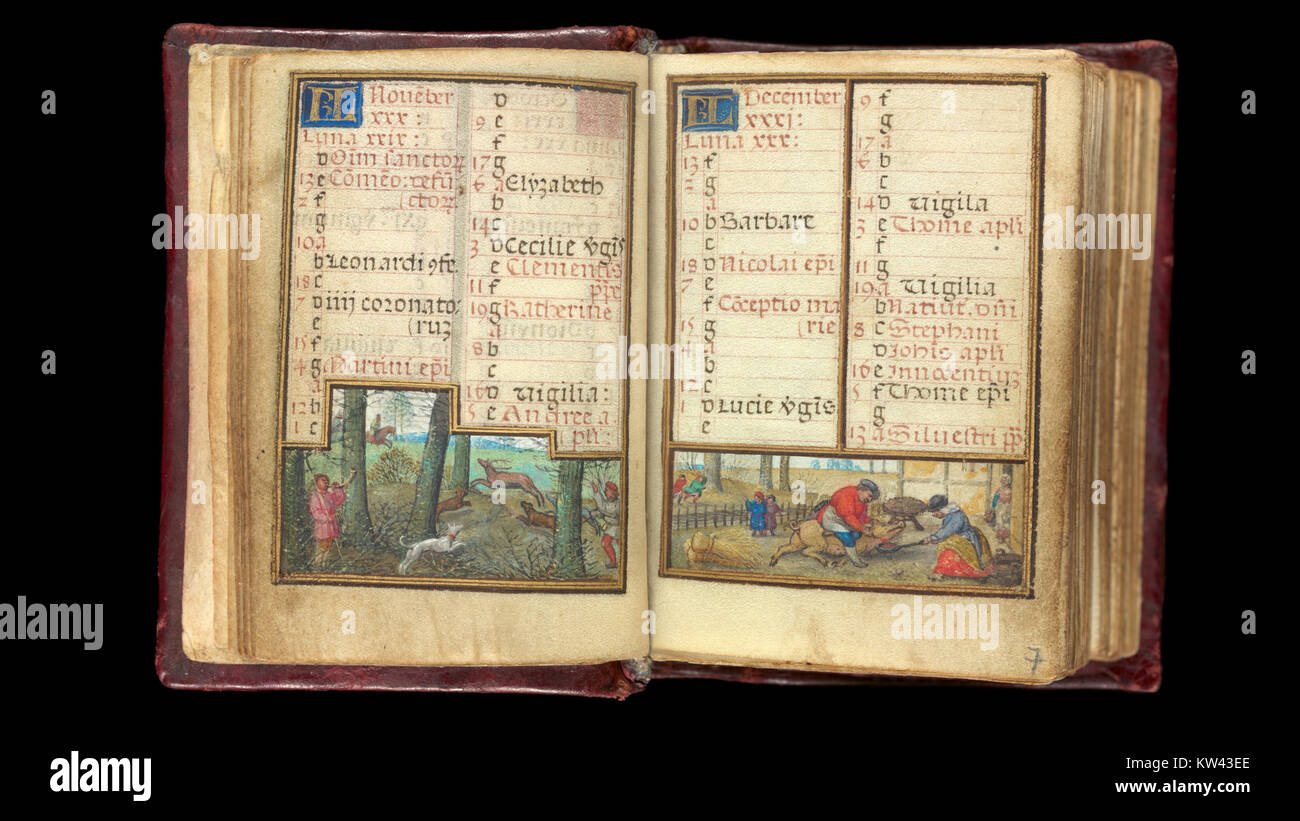 KL Noueber
xxx :
Luna xxix :
d Oim sanctor
13 e Comeo : defu
2 f (ctor
g
10 a
b Leonardi 9fe
18 c
7 d iiii coronato
e (ruz
15 f
4 g Martini epi
a
12 b
1 c
d
9 e
f
17 g
6 a Elyzabeth
b
14 c
3 d Cecilie vgis
e Clementis
11 f pp
19 g Katherine
a
8 b
c
16 d Vigilia :
5 e Andree a
pli :
KL December
xxxi :
Luna xxx :
13 f
2 g
a
10 b Barbare
c
18 d Nicolai epi
7 e
f Coceptio ma
15 g (rie
4 a
b
12 c
1 d Lucie vgis
e
9 f
g
17 a
6 b
c
14 d Vigila
3 e Thome apli
f
11 g
19 a Vigilia
b Natiuit. dni
8 c Stephani
d Johis apli
16 e Innocentiuz
5 f Thome epi
g
13 a Siluestri pp
7
alamy
Image ID: KW43EE
www.alamy.com